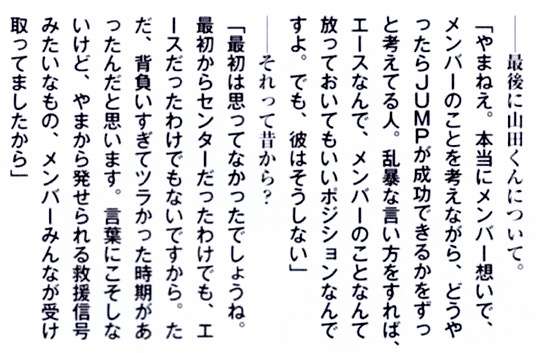 ――最後に山田くんについて。
「やまねえ。本当にメンバー想いで、
メンバーのことを考えながら、どうや
ったらＪＵＭＰが成功できるかをずっ
と考えてる人。乱暴な言い方をすれば、
エースなんで、メンバーのことなんて
放っておいてもいいポジションなんで
すよ。でも、彼はそうしない」
――それって昔から？
「最初は思ってなかったでしょうね。
最初からセンターだったわけでも、エ
ースだったわけでもないですから。た
だ、背負いすぎてツラかった時期があ
ったんだと思います。言葉にこそしな
いけど、やまから発せられる救援信号
みたいなもの、メンバーみんなが受け
取ってましたから」